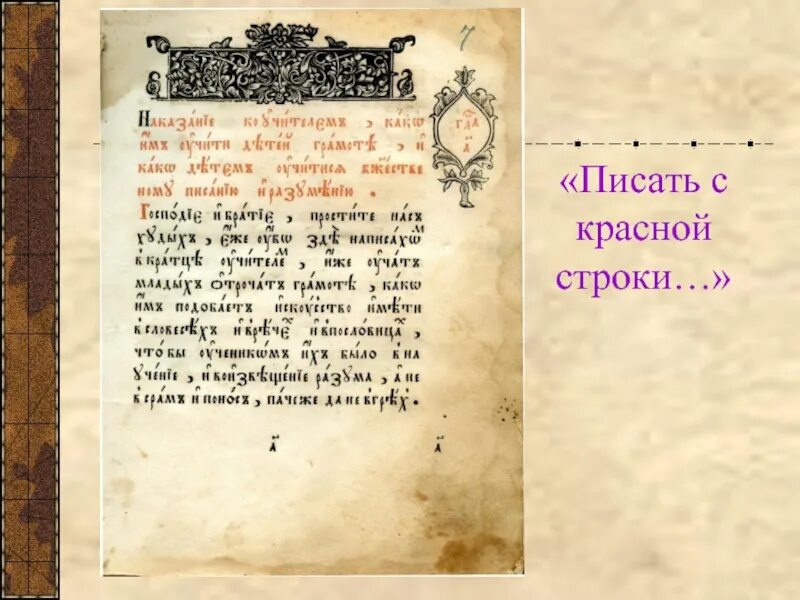 7
Наказа́нїе ко ᲂу҆чи́телемъ , ка́кѡ
и҆̀мъ ᲂу҆чи́ти дѣте́й гра́мотѣ , и҆
ка́кѡ дѣ́темъ ᲂу҆чи́тисѧ бж҃е́стве
ному писа́нїю и҆ разꙋмѣ́нїю .
гла
а҃
Господі́е и҆ бра́тїе , прости́те на́съ
хꙋды́хъ , є҆́же ᲂу҆́бѡ здѣ̀ написа́хѡм
вкра́тцѣ ᲂу҆чи́телє , и҆̀же ᲂу҆́чатъ
млады́хъ ѻ҆троча́тъ гра́мотѣ , ка́кѡ
и҆̀мъ подоба́етъ и҆скꙋ́сство и҆мѣ́ти
всловесѣ́хъ и҆врѣ́че и҆впосло́вица ,
что́бы ᲂу҆ченикѡ́мъ и҆́хъ бы́ло вна
ꙋче́нїе , и҆воизвѣще́нїе ра́зꙋма , а҆́не
всра́мъ и҆ поно́съ , па́чеже да не вгрѣ́х .
а҃ а҃
«Писать с
красной
строки…»